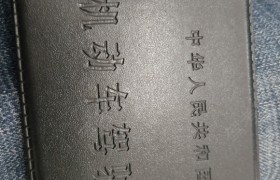 中华人民共和
机动车驾